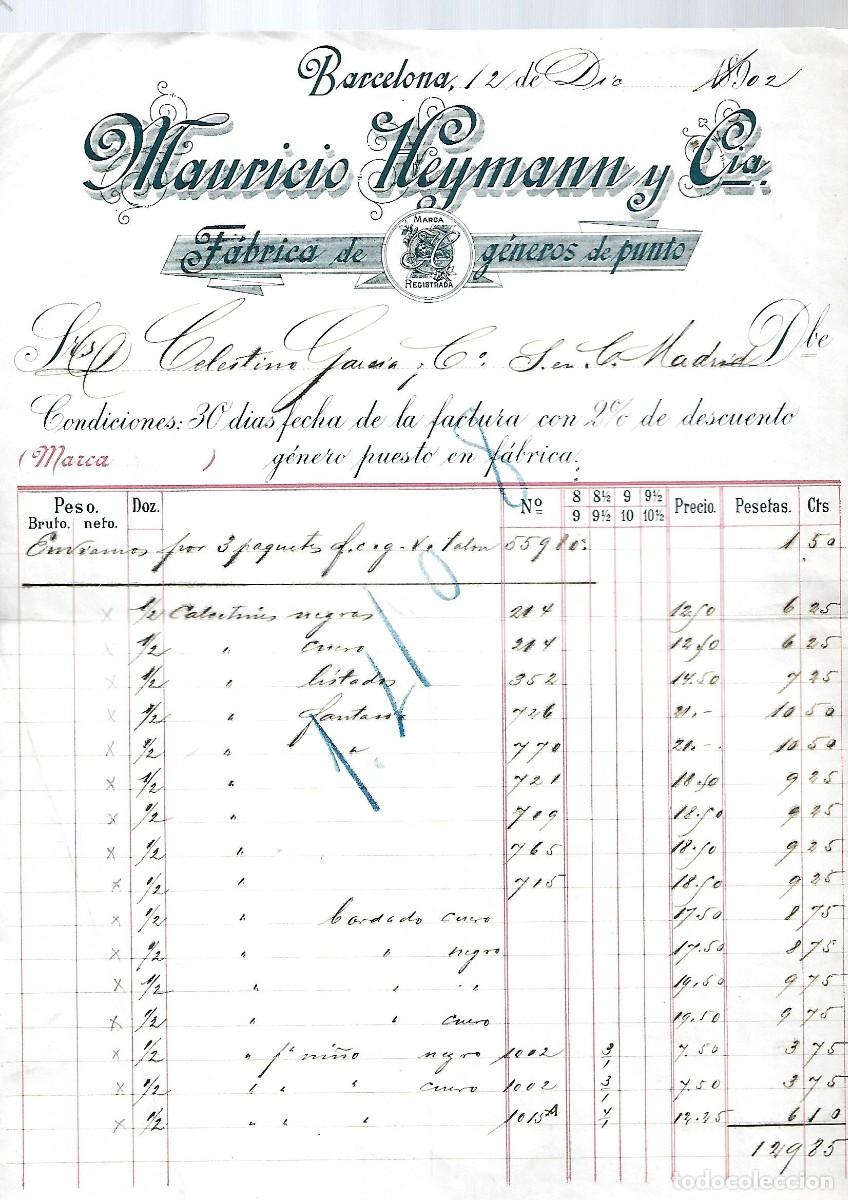 Barcelona, 12 de Dic 1902
Mauricio Heymann y Cía.
Fábrica de géneros de punto
MARCA
REGISTRADA
Sres Celestino García y Cª. S. en C. Madrid Dbe
Condiciones: 30 dias fecha de la factura con 2% de descuento
(Marca ) género puesto en fábrica.
8
Peso. Doz. Nº 8 8½ 9 9½ Precio. Pesetas. Cts
Bruto. neto. 9 9½ 10 10½
Enviamos por 3 paquetes f.c. g.v. talon 55980 1 50
x 1/2 Calcetines negros 214 12.50 6 25
x 1/2 " cuero 214 12.50 6 25
x 1/2 " listados 352 14.50 7 25
x 1/2 " fantasia 726 21.- 10 50
x 1/2 " " 770 21.- 10 50
x 1/2 " 721 18.50 9 25
x 1/2 " 709 18.50 9 25
x 1/2 " 765 18.50 9 25
x 1/2 " 715 18.50 9 25
x 1/2 " bordado cuero 17.50 8 75
x 1/2 " " negro 17.50 8 75
x 1/2 " " " 19.50 9 75
x 1/2 " " cuero 19.50 9 75
x 1/2 " pª niño negro 1002 3/1 7.50 3 75
x 1/2 " " " cuero 1002 3/1 7.50 3 75
x 1/2 " " " 1015A 4/1 12.25 6 10
129 85
todocoleccion